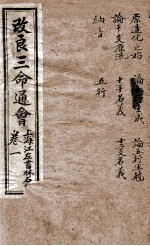 原造化之始
論　　　　成
論五行生尅
論干支源流
十干名義
十二支名義
納音
五行
改良三命通會
卷一
上海江左書林